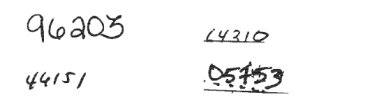 96203
14310
44151
05753